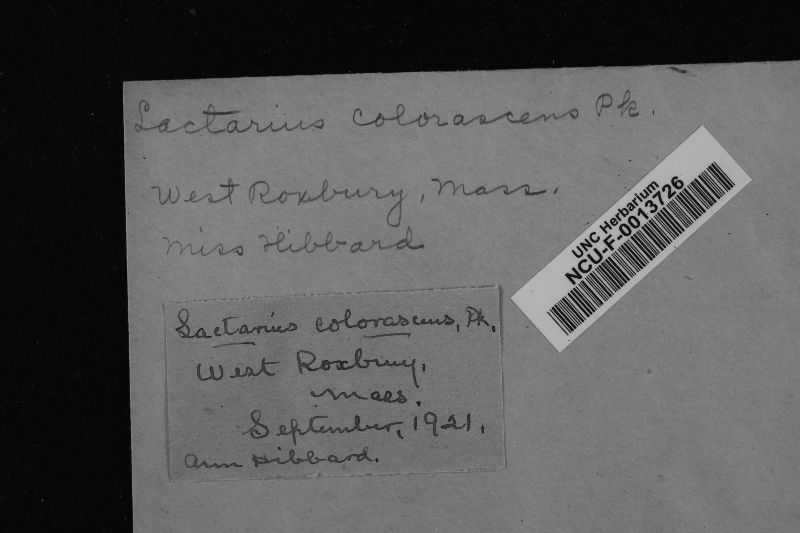 Lactarius colorascens Pk.
West Roxbury, Mass.
Miss Hibbard
UNC Herbarium
NCU-F-0013726
Lactarius colorascens, Pk.
West Roxbury,
Mass.
September, 1921.
Ann Hibbard.